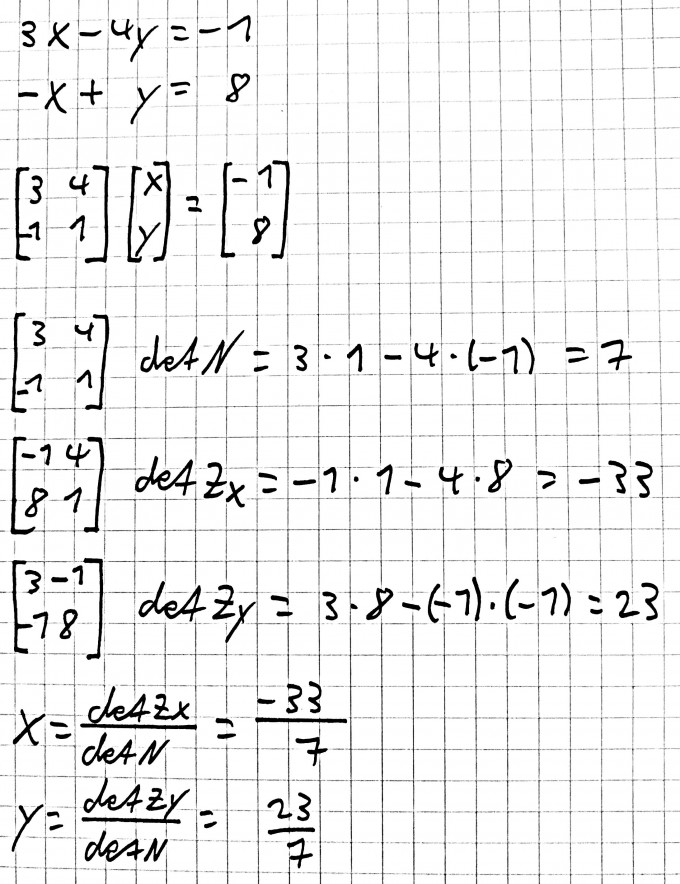 3x - 4y = -1
-x + y = 8
[3 4] [x] = [-1]
[-1 1] [y] [8]
[3 4] det N = 3 · 1 - 4 · (-1) = 7
[-1 1]
[-1 4] det Zx = -1 · 1 - 4 · 8 = -33
[8 1]
[3 -1] det Zy = 3 · 8 - (-1) · (-1) = 23
[-1 8]
x = det Zx / det N = -33 / 7
y = det Zy / det N = 23 / 7